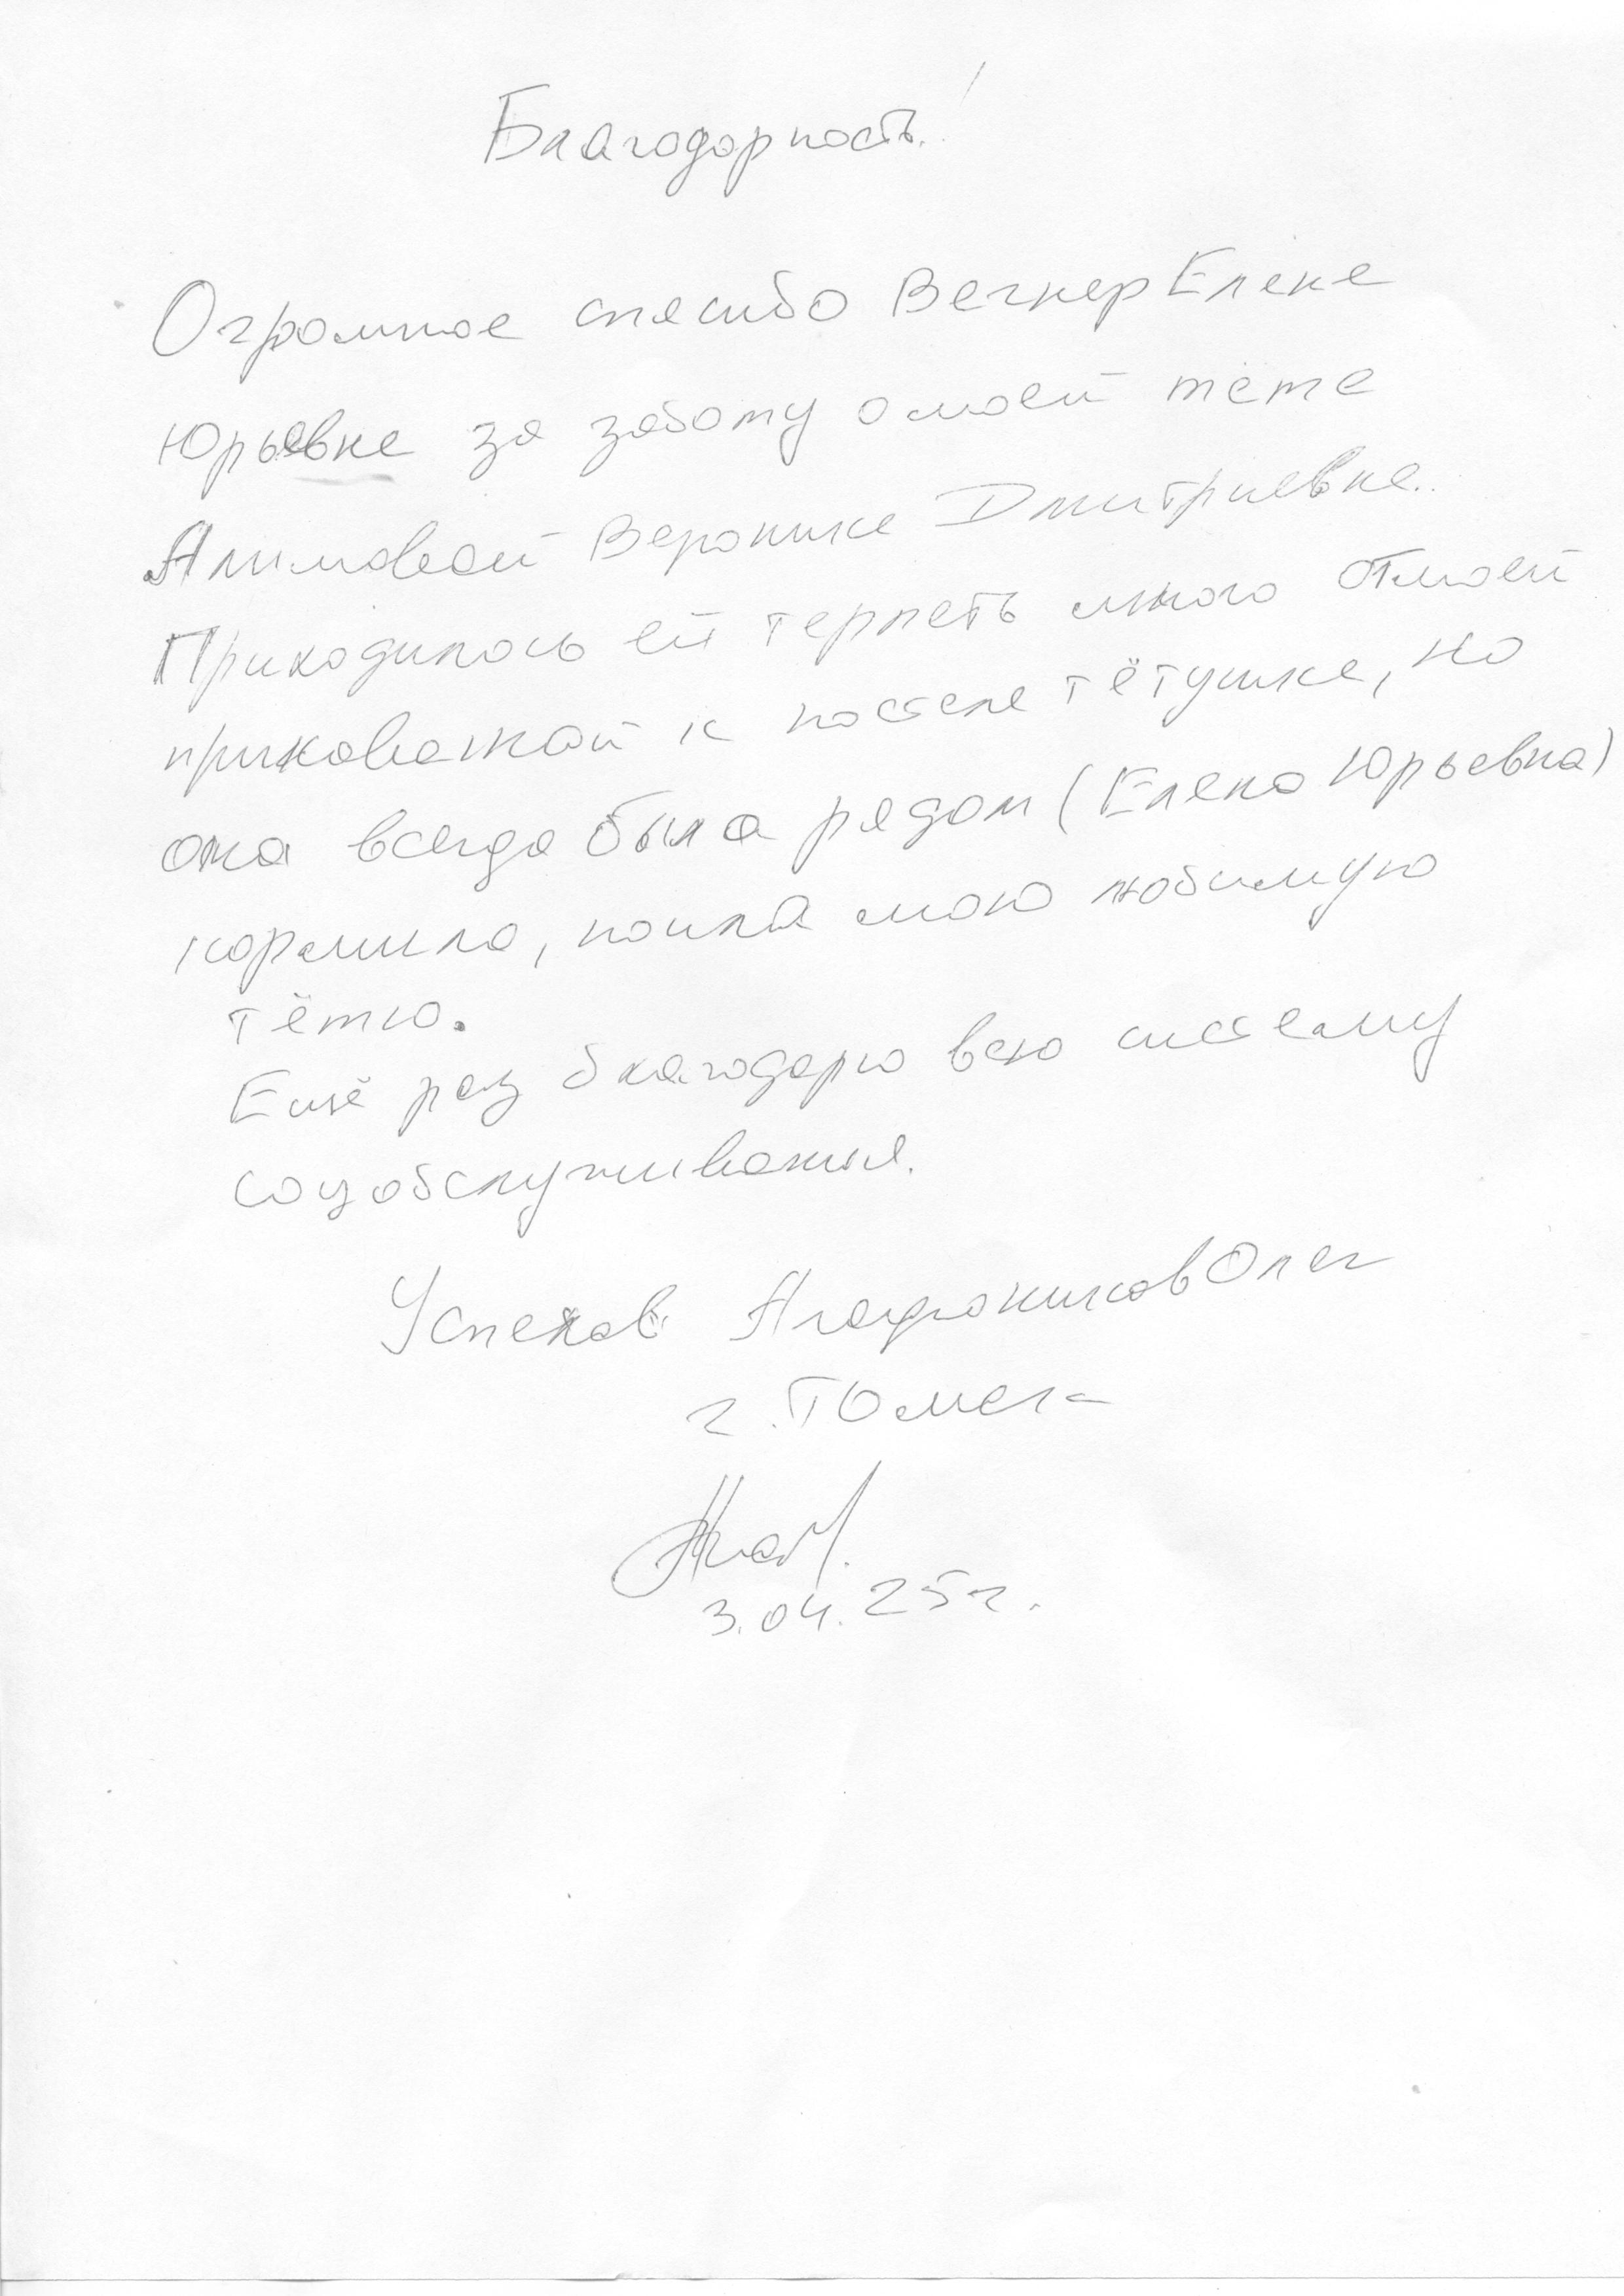 Благодарность!
Огромное спасибо Вегнер Елене
Юрьевне за заботу о моей тёте
Алимовой Веронике Дмитриевне.
Приходилось ей терпеть много от моей
прикованой к постеле тётушке, но
она всегда была рядом (Елена Юрьевна)
кормила, поила мою любимую
тётю.
Ещё раз благодарю всю систему
соцобслуживания.
Успехов Агафоников Олег
г. Томск
3.04.25г.